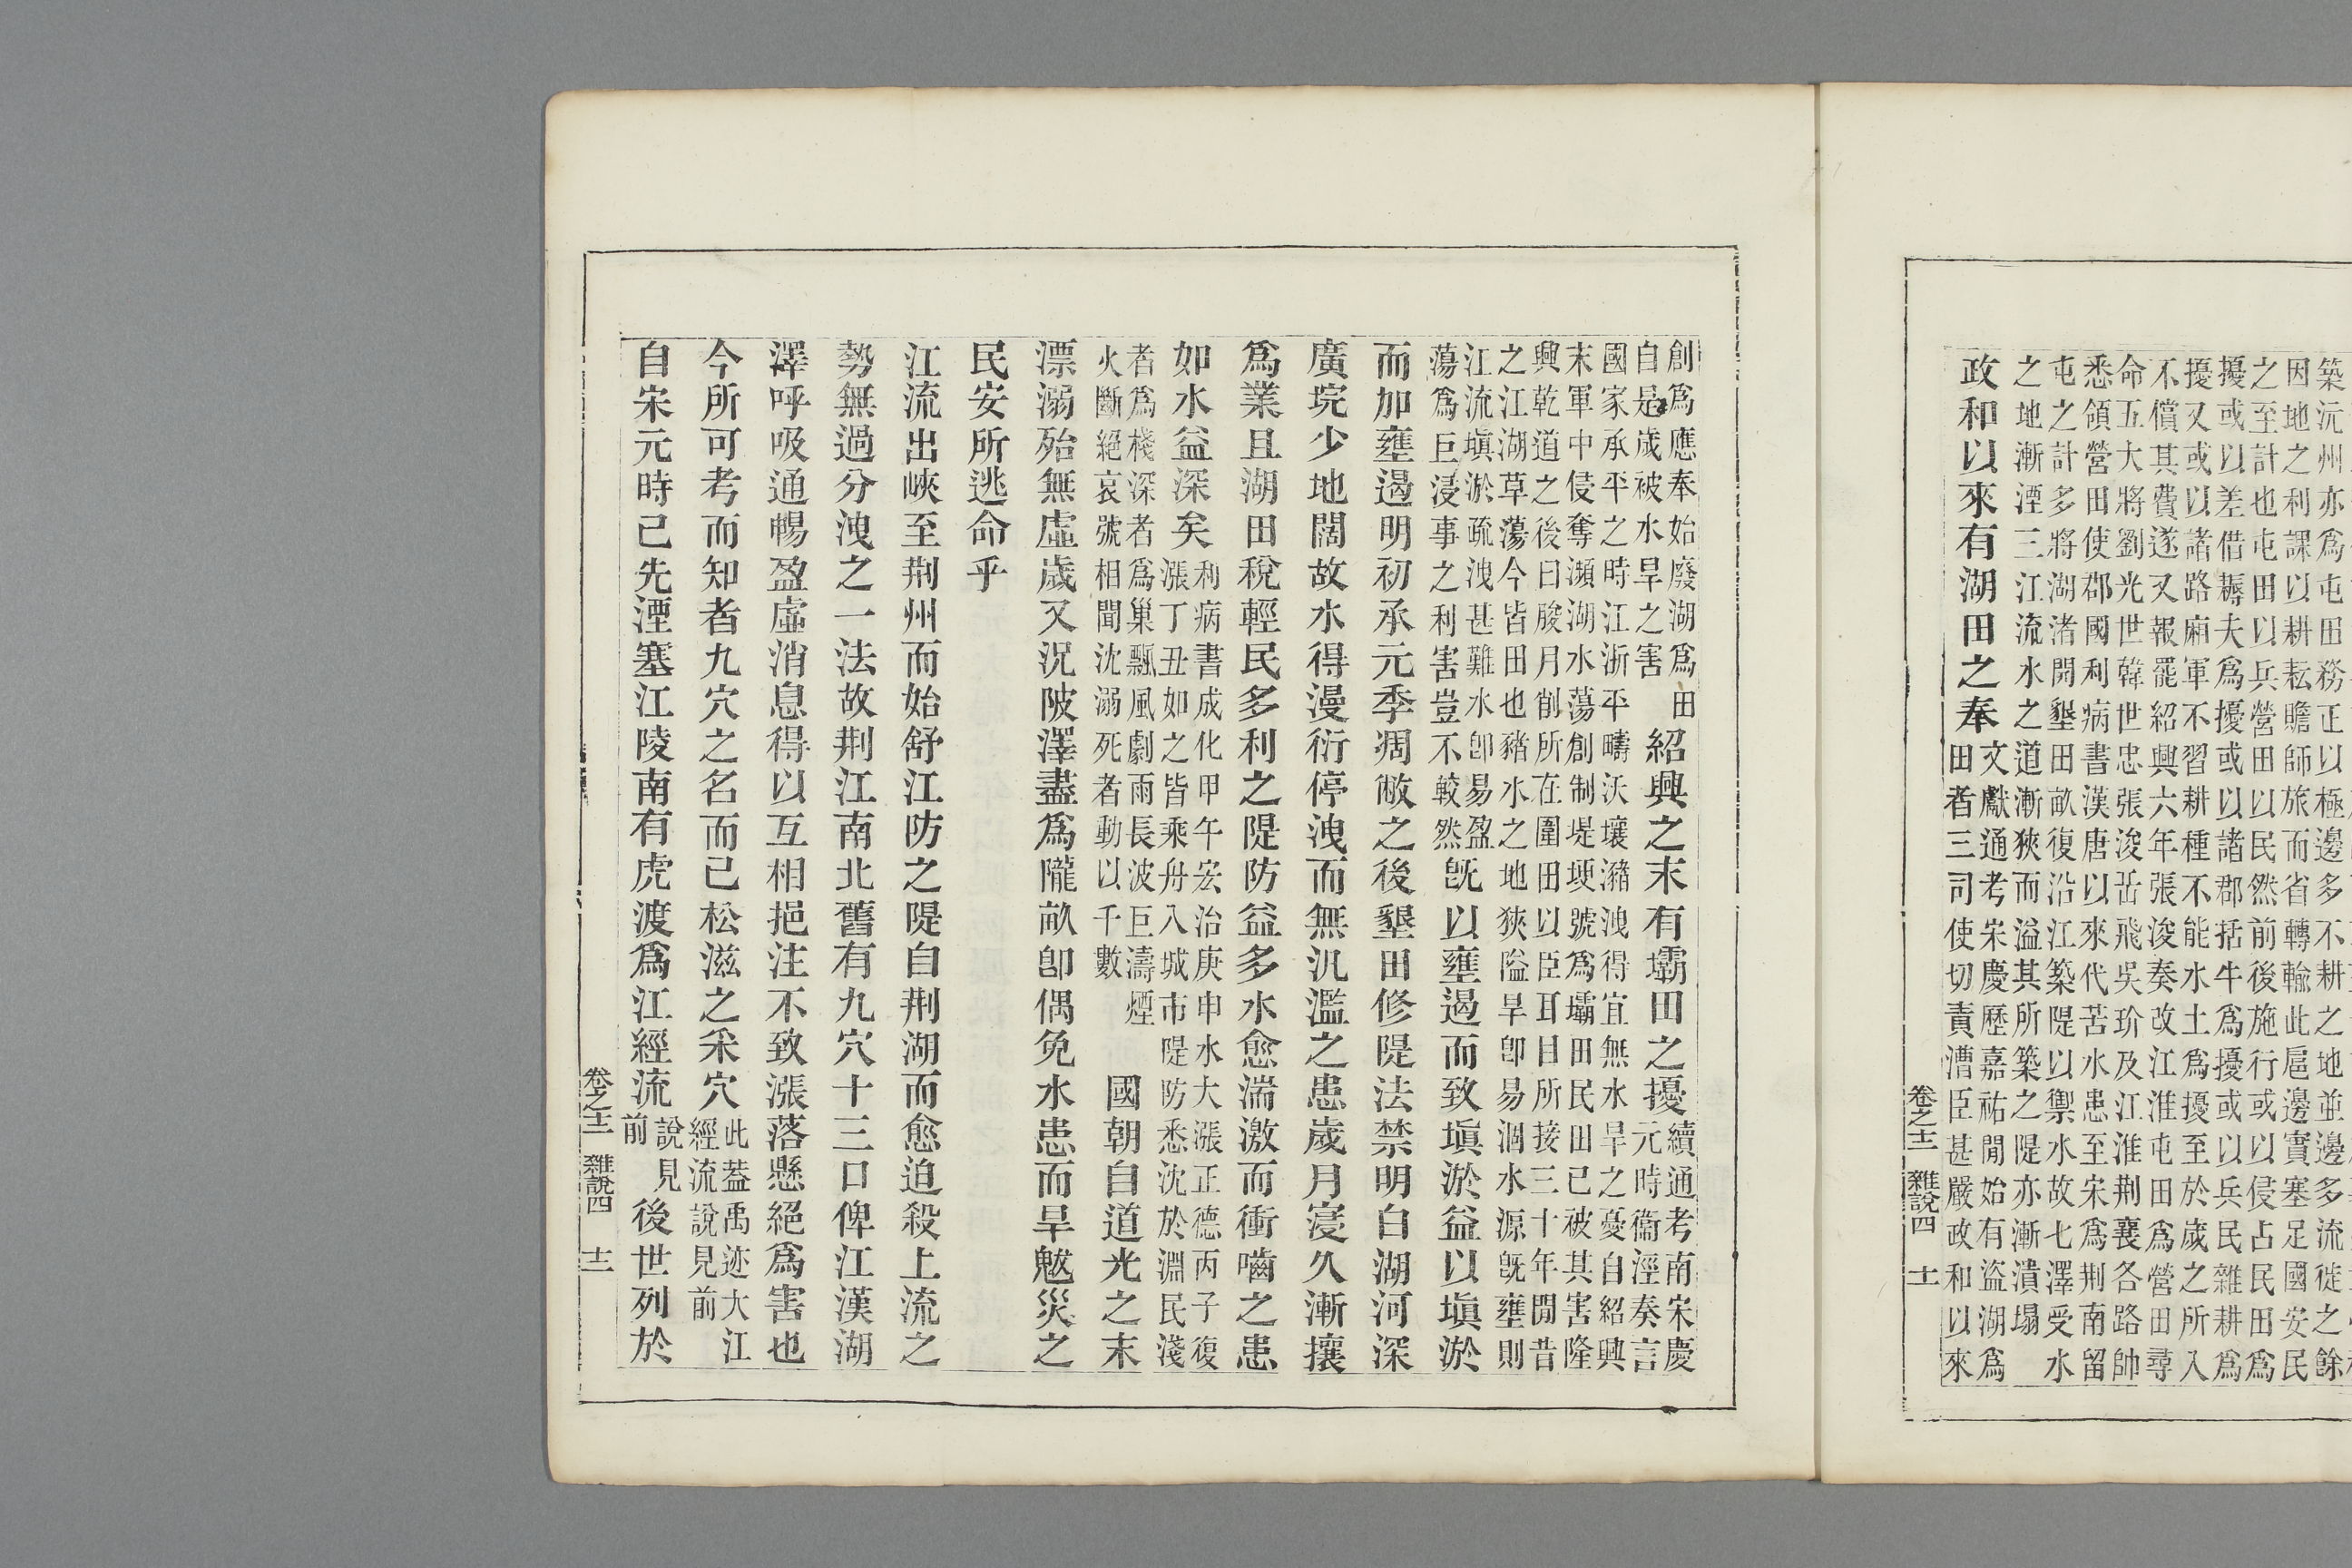 築沅州亦爲屯田務正以極邊多不耕之地並邊多流徙之餘
因地之利課以耕耘贍師旅而省轉輸此扈邊實塞足國安民
之至計也屯田以兵營田以民然前後施行或以侵占民田爲
擾或以差借耨夫爲擾或以諸郡括牛爲擾或以兵民雜耕爲
擾又或以諸路廂軍不習耕種不能水土爲擾至於歲之所入
不償其費遂又報罷紹興六年張浚奏改江淮屯田爲營田尋
命五大將劉光世韓世忠張浚岳飛吳玠及江淮荆襄各路帥
悉領營田使郡國利病書漢唐以來代苦水患至宋爲荆南留
屯之計多將湖渚開墾田畝復沿江築隄以禦水故七澤受水
之地漸湮三江流水之道漸狹而溢其所築之隄亦漸潰塌
政和以來有湖田之奉
文獻通考宋慶歷嘉祐閒始有盜湖爲
田者三司使切責漕臣甚嚴政和以來
卷之十二 雜說四 十一
創爲應奉始廢湖爲田
自是歲被水旱之害
紹興之末有壩田之擾
續通考南宋慶
元時衞涇奏言
國家承平之時江浙平疇沃壤瀦洩得宜無水旱之憂自紹興
末軍中侵奪瀕湖水蕩創制堤埂號爲壩田民田已被其害隆
興乾道之後日朘月削所在圍田以臣耳目所接三十年閒昔
之江湖草蕩今皆田也豬水之地狹隘旱卽易涸水源旣壅則
江流塡淤疏洩甚難水卽易盈
蕩爲巨浸事之利害豈不較然
旣以壅遏而致塡淤益以塡淤
而加壅遏明初承元季凋敝之後墾田修隄法禁明白湖河深
廣垸少地闊故水得漫衍停洩而無汎濫之患歲月寖久漸攘
爲業且湖田稅輕民多利之隄防益多水愈湍激而衝嚙之患
如水益深矣
利病書成化甲午宏治庚申水大漲正德丙子復
漲丁丑如之皆乘舟入城市隄防悉沈於淵民淺
者爲棧深者爲巢飄風劇雨長波巨濤煙
火斷絕哀號相聞沈溺死者動以千數
國朝自道光之末
漂溺殆無虛歲又況陂澤盡爲隴畝卽偶免水患而旱魃災之
民安所逃命乎
江流出峽至荆州而始舒江防之隄自荆湖而愈迫殺上流之
勢無過分洩之一法故荆江南北舊有九穴十三口俾江漢湖
澤呼吸通暢盈虛消息得以互相挹注不致漲落懸絕爲害也
今所可考而知者九穴之名而已松滋之采穴
此葢禹迹大江
經流說見前
自宋元時已先湮塞江陵南有虎渡爲江經流
說見
前
後世列於
卷之十二 雜說四 十二